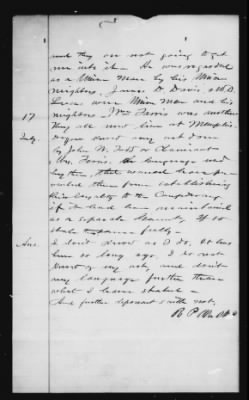 and they are not going to get
me into it. He was regarded
as a Union Man by his Union
neighbors, James D. Davis & W. D.
were Union Men and his
neighbors. Wm Farris was another
They all now live at Memphis.
17
Inty.
by John W. Todd or Claimant
or Mrs. Farris, the language used
by them, that would have pre-
vented them from establishing
their loyalty to the Confederacy
if it had been maintained
as a separate Country. If so
state same fully—
Ans.
I don't know as I do. It has
been so long ago. I do not
know of any act, and don't
any language further than
what I have stated—
And further deponent saith not.